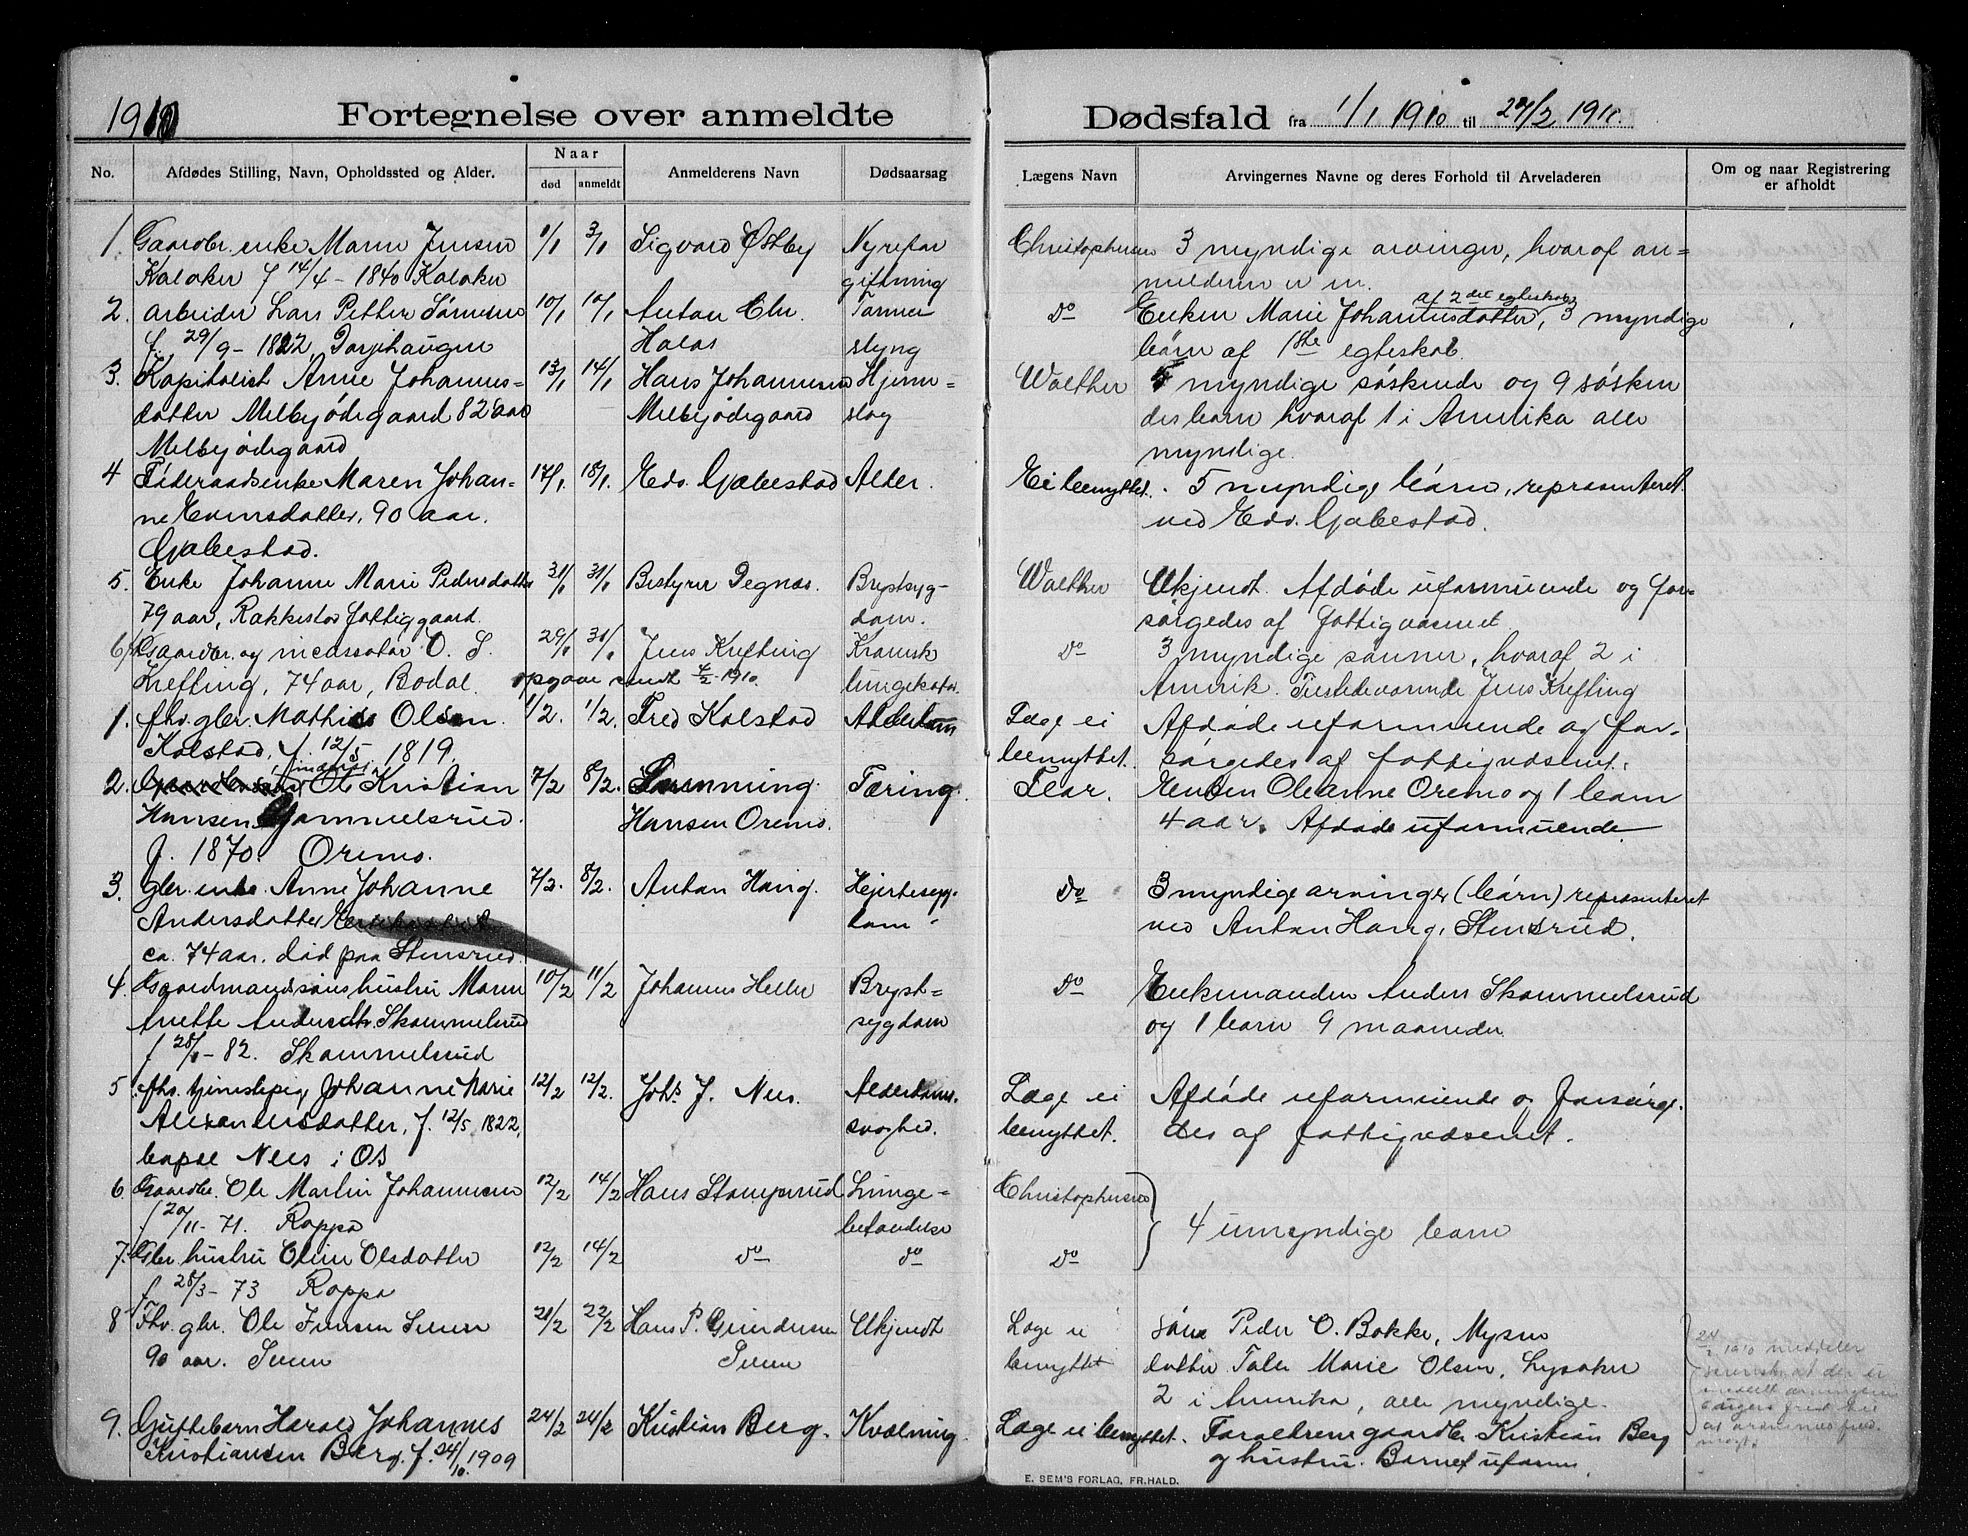 1910
Fortegnelse over anmeldte Dødsfald fra 1/1 1910 til 24/2 1910.
No. Afdødes Stilling, Navn, Opholdssted og Alder. Naar død anmeldt Anmelderens Navn Dødsaarsag Lægens Navn Arvingernes Navne og deres Forhold til Arveladeren Om og naar Registrering er afholdt
1. Gaardbr. enke Maren Jensen 1/1 3/1 Sigvard Østby Nyrefor Christophersen 3 myndige arvinger, hvoraf an=
Kolaker f 14/4 - 1840 Kolaker giftning melderen er en.
2. Arbeider Lars Petter Sørensen 10/1 10/1 Anton Chr. Tarmer do Enken Marie Johannesdatter, af 2det egteskab, 3 myndige
f. 29/9 - 1822 Holøs slyng børn af 1ste egteskab.
3. Kapitalist Anne Johannes= 13/1 14/1 Hans Johannesen Hjerne= Walther 5 myndige søskende og 9 søsken
datter Melbyødegaard 82 aar Melbyødegaard slag desbarn hvoraf 1 i Amerika alle
Melbyødegaard myndige.
4 Føderaadsenke Maren Johan= 17/1 18/1 Edv. Gjølbestad Alder. Ei benyttet. 5 myndige børn, repræsenteret
ne Evensdatter, 90 aar. ved Edv. Gjølbestad.
Gjølbestad.
5. Enke Johanne Marie Pedersdatter 31/1 31/1 Bestyrer Degnæs. Brystsyg- Walther Ukjendt. Afdøde uformuende og for=
79 aar, Rakkestad fattiggaard. dom. sørgedes af fattigvæsenet.
6/ Gaardbr. og incassator O. S. 29/1 31/1 Jens Krefting Kronisk do 3 myndige sønner, hvoraf 2 i
Krefting, 74 aar, Bodal. opgave sendt 4/2 1910. lungekatar. Amerik. Tilstedeværende Jens Krefting
1. fhv. gbr. Mathias Olsen 1/2. 1/2. Fred Kolstad Alderdom Læge ei Afdøde uformuende og for-
Kolstad, f. 12/5 1819. benyttet. sørgedes af fattigvæsenet.
2. Ole Kristian 7/2 8/2. Flemming Tæring. Flor. Enken Oleanne Oremo og 1 barn
Hansen Gammelsrud. Hansen Oremo. 4 aar. Afdøde uformuende
f. 1870. Oremo.
3. Gbr. enke Anne Johanne 7/2. 8/2. Anton Haug. Hjertesyg- do 3 myndige arvinger (børn) repræsenteret
Andersdatter dom ved Anton Haug, Stensrud.
ca. 74 aar. død paa Stensrud.
4. Gaardmandsønshustru Maren 10/2 11/2 Johannes Heller Bryst= do Enkemanden Anders Skammelsrud
Anette Andersdtr. Skammelsrud sygdom og 1 barn 9 maaneder
f 28/1 - 82. Skammelsrud
5. fhv. tjenestepig Johanne Marie 12/2 12/2. Johs J. Nes. Alderdoms. Læge ei Afdøde uformuende og forsørge.
Alexandersdatter, f. 12/5 1822, svaghed. benyttet. des af fattigvæsenet.
Nes i Os
6. Gaardbr. Ole Martin Johannesen 12/2 14/2 Hans Stomperud Lunge= Christophersen } 4 umyndige børn
f 20/11 - 71. Roppa betændelse
7. Gbr. hustru Oline Olsdatter 12/2 14/2 do do do
f 28/3 - 73 Roppa
8 Fhv. gbr. Ole Jensen 21/2 22/2 Hans P. Gundersen Ukjendt Læge ei Søn Peder O. Bakke, Mysen
90 aar. benyttet datter Tale Marie Olsen, Lysaker
2 i Amerika, alle myndige.
24/2 1910 meddeler
9. Giftebarn Harald Johannes 24/2 24/2 Kristian Berg. Kvælning. Læge ei benyttet. Forældrene gaardbr Kristian Berg
Kristiansen Berg. f. 24/10. 1909 og hustru. Barnet uform.
E. SEM'S FORLAG, FR.HALD.